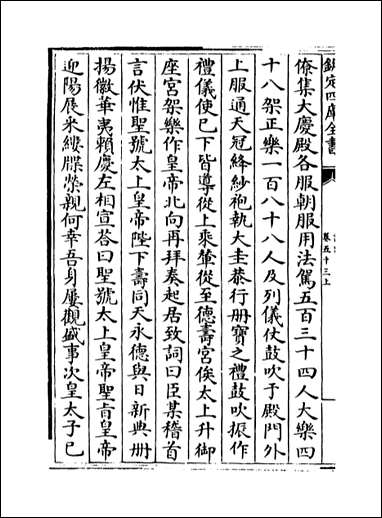 欽定四庫全書
卷五十三上
僚集大慶殿各服朝服用法駕五百三十四人大樂四
十八架正樂一百八十八人及列儀仗鼓吹于殿門外
上服通天冠絳紗袍執大圭恭行册寶之禮鼓吹振作
禮儀使已下皆導從上乘輦從至德壽宮俟太上升御
座宮架樂作皇帝北向再拜奏起居致詞曰臣某稽首
言伏惟聖號太上皇帝陛下壽同天永德與日新典册
揚徽華夷賴慶左相宣答曰聖號太上皇帝聖旨皇帝
迎陽展采縷牒榮親何幸吾身屢觀盛事次皇太子已